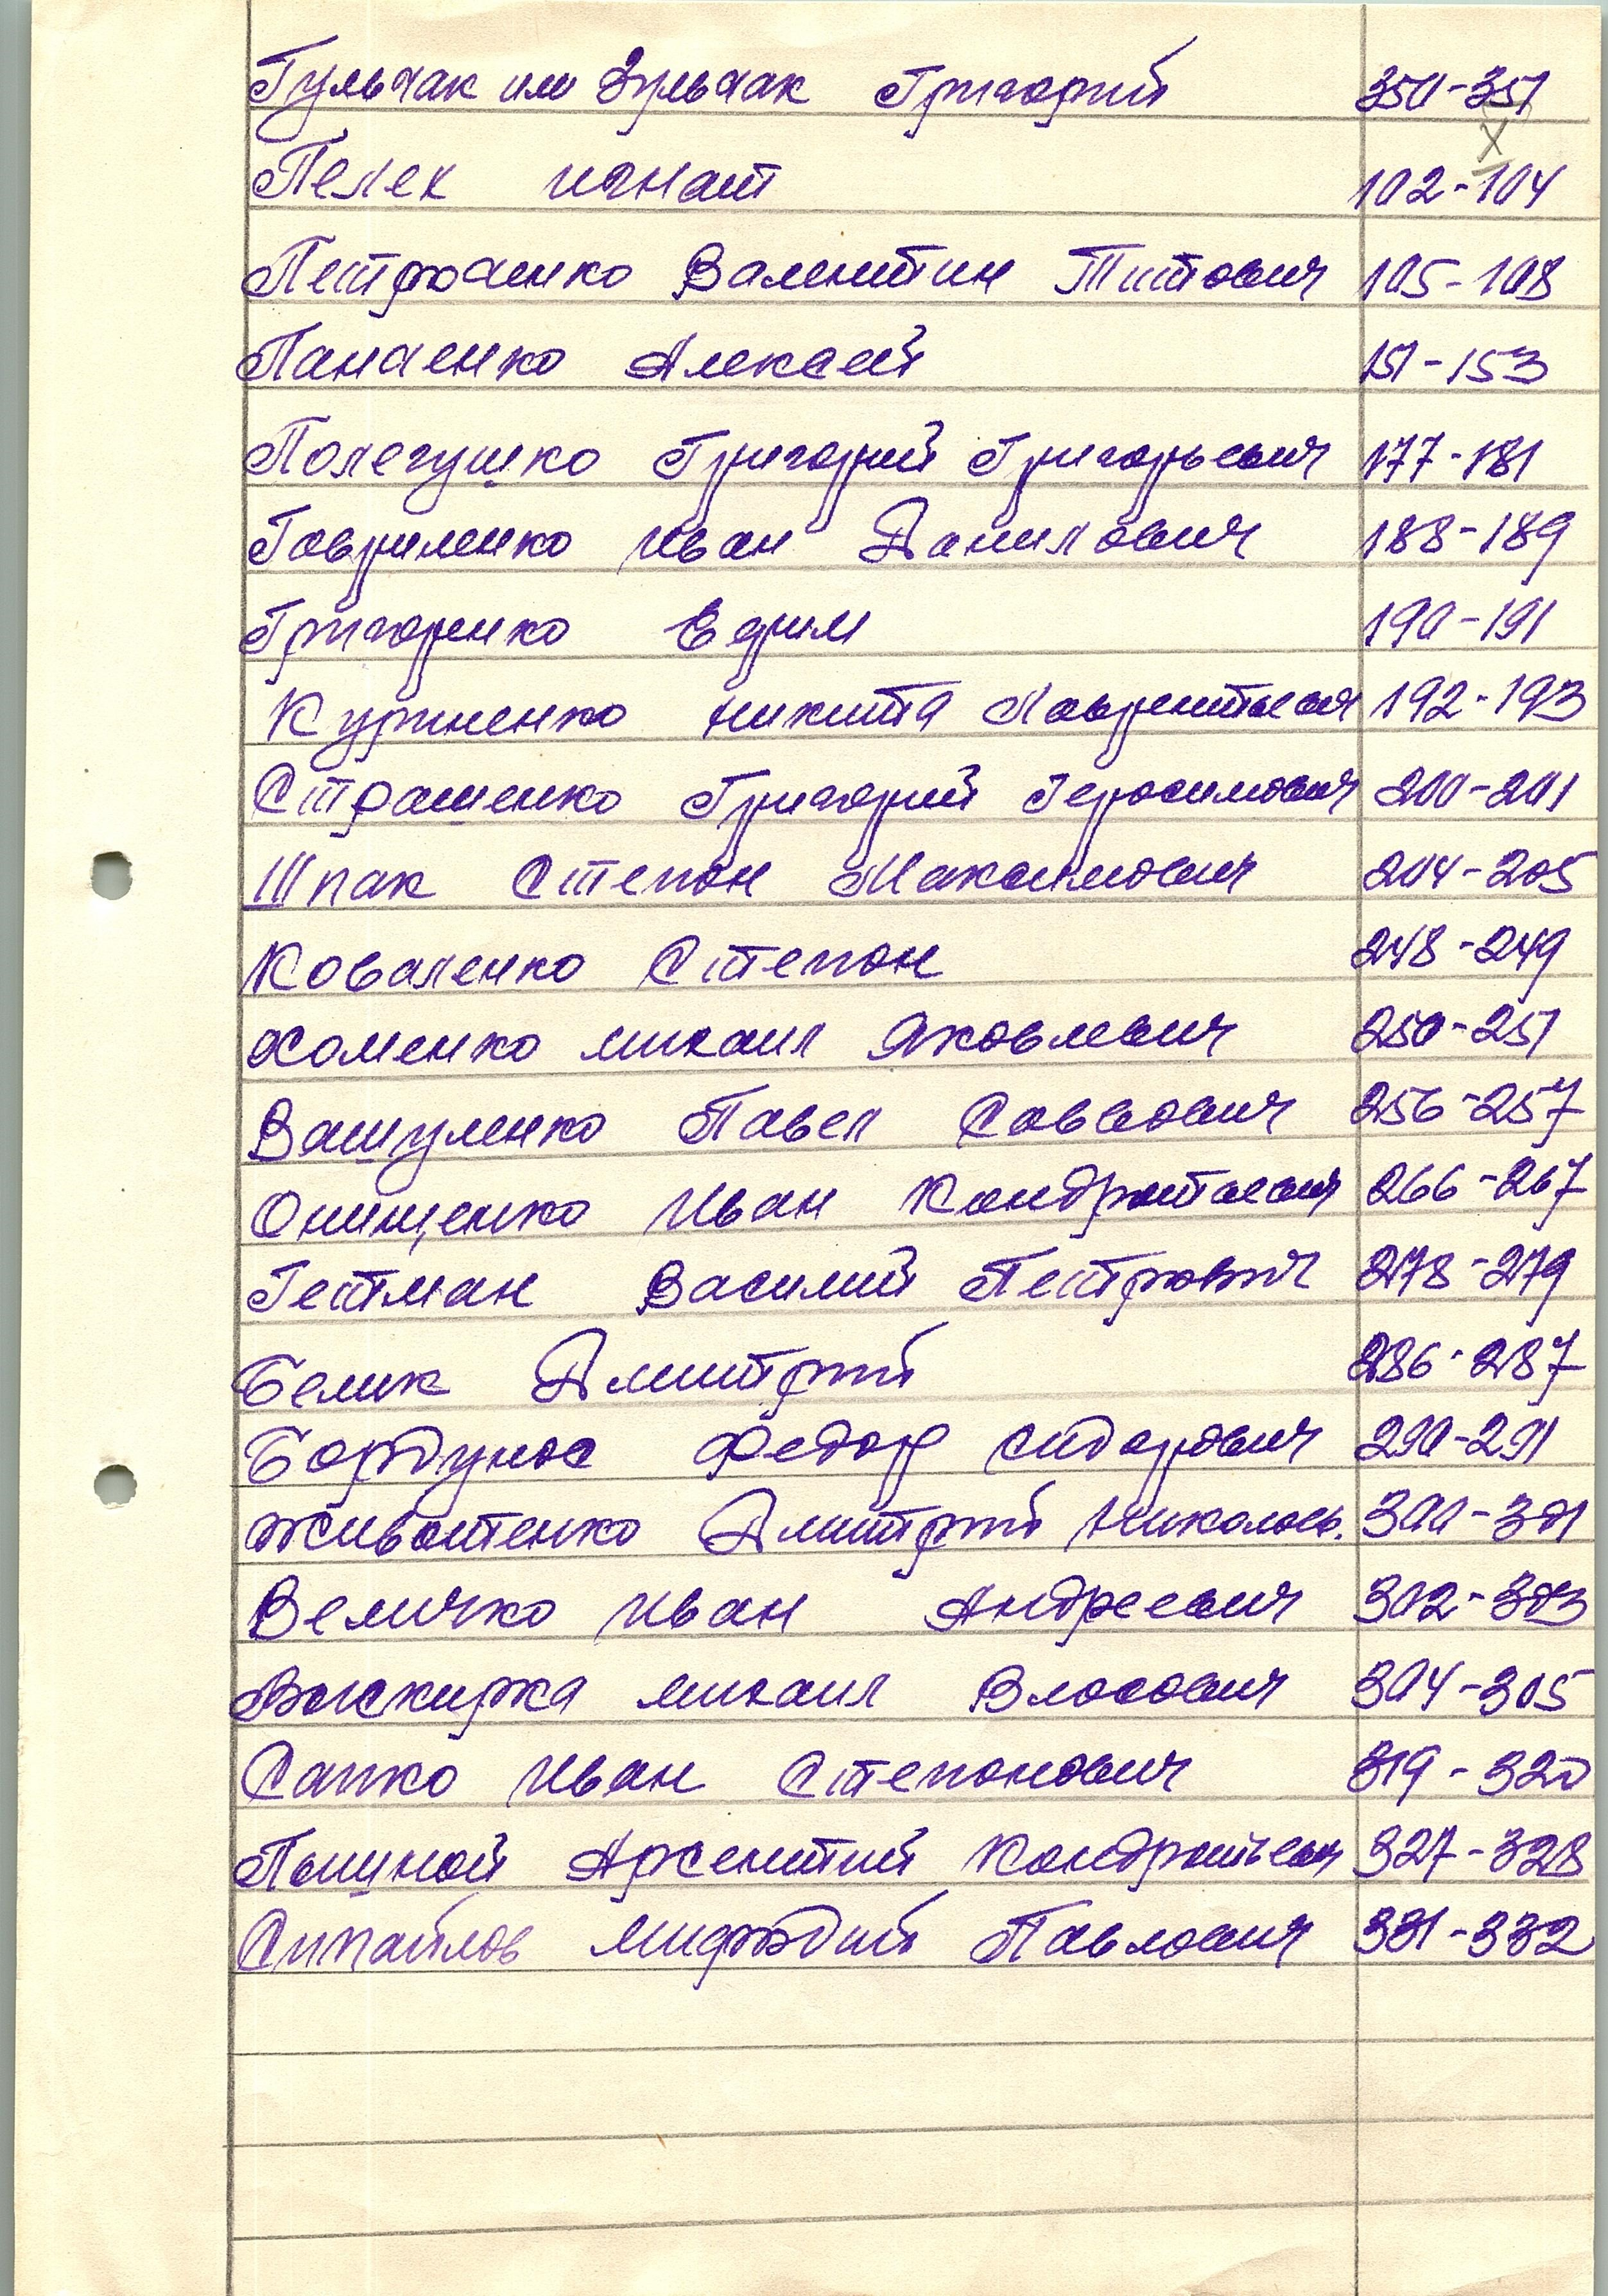 Гульчак или Зульчак Григорий 350-351
X
Пелех Игнат 102-104
Петроченко Валентин Титович 105-108
Панченко Алексей 151-153
Полегушко Григорий Григорьевич 177-181
Гавриленко Иван Данилович 188-189
Григоренко Ефим 190-191
Куриненко Никита Лаврентьевич 192-193
Страшенко Григорий Герасимович 200-201
Шпак Степан Максимович 204-205
Коваленко Степан 248-249
Хоменко Михаил Яковлевич 250-251
Вашуленко Павел Саввович 256-257
Онищенко Иван Кондратьевич 266-267
Гетман Василий Петрович 278-279
Белик Дмитрий 286-287
Бордунос Федор Сидорович 290-291
Животенко Дмитрий Николаев. 300-301
Величко Иван Андреевич 302-303
Выскирка Михаил Власович 304-305
Сапко Иван Степанович 319-320
Пышной Арсентий Кондратьевич 327-328
Сипайлов Мифодий Павлович 331-332